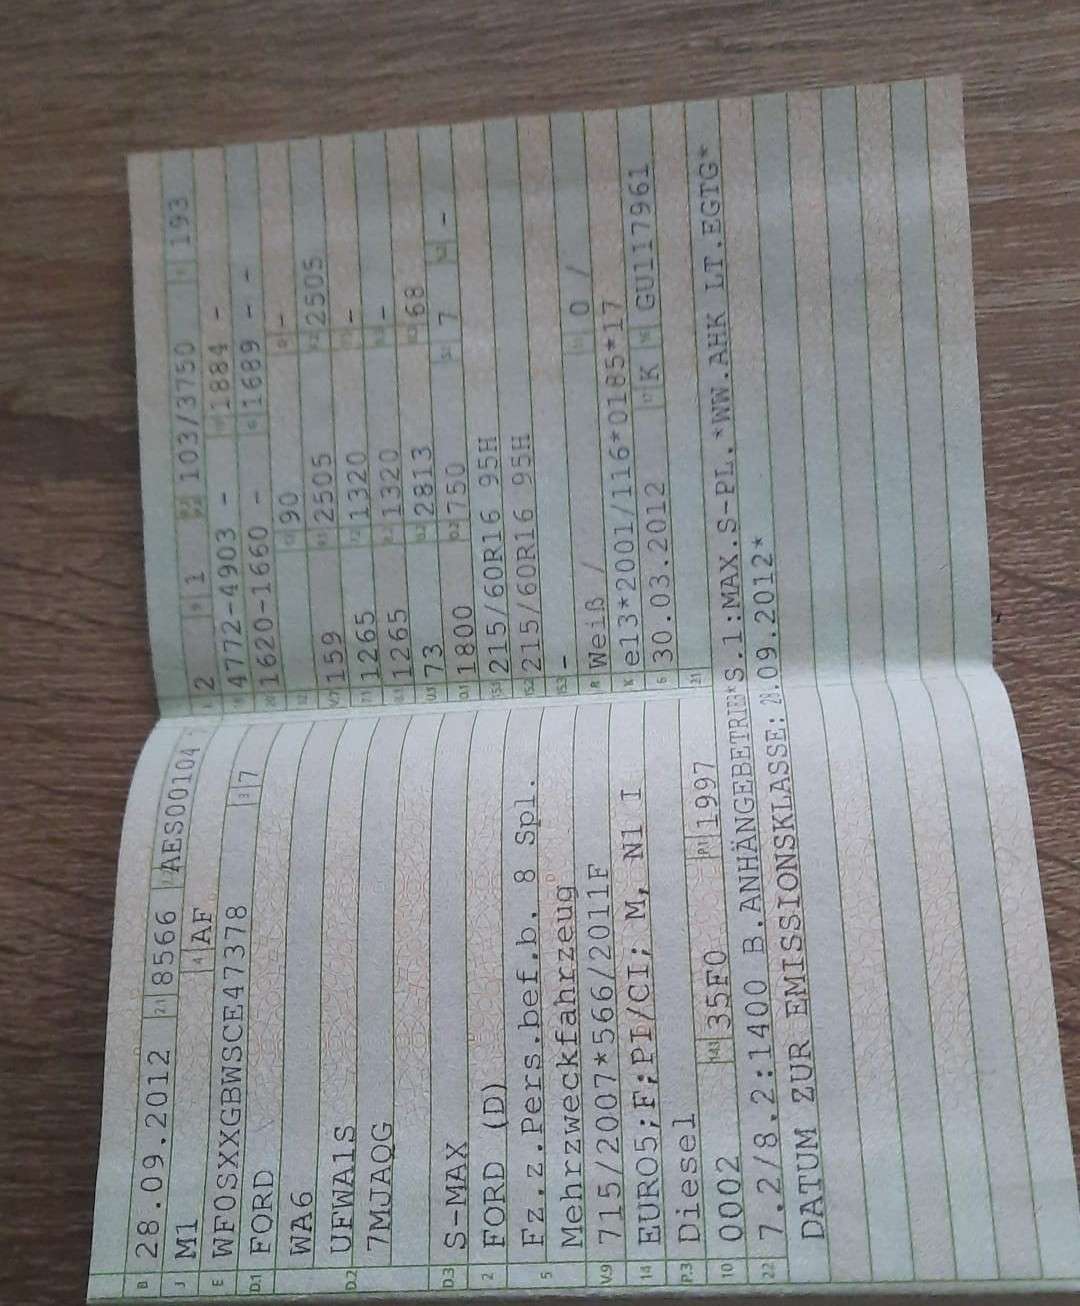 B 28.09.2012 2.1 8566 2.2 AES00104 7
J M1 4 AF
E WF0SXXGBWSCE47378 3 7
D.1 FORD
WA6
D.2 UFWA1S
7MJAQG
D.3 S-MAX
2 FORD (D)
5 Fz.z.Pers.bef.b. 8 Spl.
Mehrzweckfahrzeug
V.9 715/2007*566/2011F
14 EURO5;F;PI/CI; M, N1 I
P.3 Diesel
10 0002 14.1 35F0 P.1 1997
22 7.2/8.2:1400 B.ANHÄNGEBETRIEB*S.1:MAX.S-PL.*WW.AHK LT.EGTG*
DATUM ZUR EMISSIONSKLASSE: 28.09.2012*
L 2 9 1 P.2 P.4 103/3750 T 193
18 4772-4903 - 19 1884 -
20 1620-1660 - G 1689 - -
12 - 13 90 Q -
V.7 159 F.1 2505 F.2 2505
7.1 1265 7.2 1320 7.3 -
8.1 1265 8.2 1320 8.3 -
U.1 73 U.2 2813 U.3 68
O.1 1800 O.2 750 S.1 7 S.2 -
15.1 215/60R16 95H
15.2 215/60R16 95H
15.3 -
R Weiß / 11 0 /
K e13*2001/116*0185*17
6 30.03.2012 17 K 16 GU117961
21